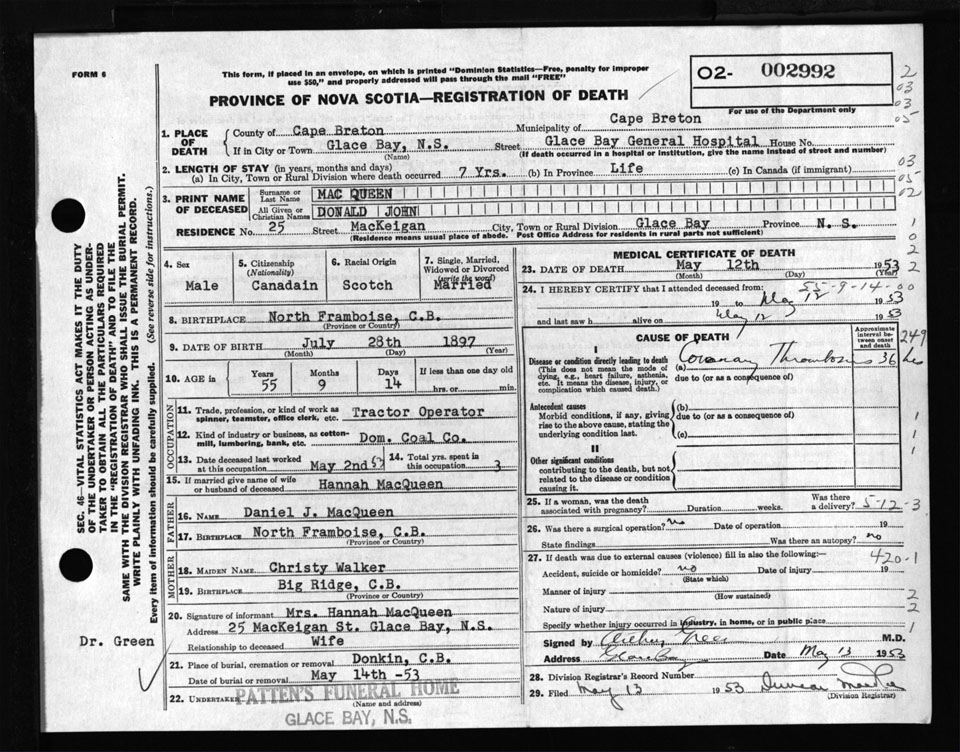 FORM 6
This form, if placed in an envelope, on which is printed "Dominion Statistics—Free, penalty for improper
use $50," and properly addressed will pass through the mail "FREE"
PROVINCE OF NOVA SCOTIA—REGISTRATION OF DEATH
02- 002992
For use of the Department only
2
03
03
05
03
05
02
1
0
2
2
1. PLACE OF DEATH
County of Cape Breton Municipality of Cape Breton
If in City or Town Glace Bay, N.S. Street Glace Bay General Hospital House No.
(Name) (If death occurred in a hospital or institution, give the name instead of street and number)
2. LENGTH OF STAY (in years, months and days)
(a) In City, Town or Rural Division where death occurred 7 Yrs. (b) In Province Life (c) In Canada (if immigrant)
3. PRINT NAME OF DECEASED
Surname or Last Name MAC QUEEN
All Given or Christian Names DONALD JOHN
RESIDENCE No. 25 Street MacKeigan City, Town or Rural Division Glace Bay Province N. S.
(Residence means usual place of abode. Post Office Address for residents in rural parts not sufficient)
4. Sex
Male
5. Citizenship (Nationality)
Canadain
6. Racial Origin
Scotch
7. Single, Married, Widowed or Divorced (write the word)
Married
8. BIRTHPLACE North Framboise, C.B.
(Province or Country)
9. DATE OF BIRTH July 28th 1897
(Month) (Day) (Year)
10. AGE in Years Months Days If less than one day old
55 9 14 hrs. or min.
OCCUPATION
11. Trade, profession, or kind of work as spinner, teamster, office clerk, etc. Tractor Operator
12. Kind of industry or business, as cotton-mill, lumbering, bank, etc. Dom. Coal Co.
13. Date deceased last worked at this occupation May 2nd 53
14. Total yrs. spent in this occupation 3
15. If married give name of wife or husband of deceased Hannah MacQueen
FATHER
16. NAME Daniel J. MacQueen
17. BIRTHPLACE North Framboise, C.B.
(Province or Country)
MOTHER
18. MAIDEN NAME Christy Walker
19. BIRTHPLACE Big Ridge, C.B.
(Province or Country)
20. Signature of informant Mrs. Hannah MacQueen
Address 25 MacKeigan St. Glace Bay, N.S.
Relationship to deceased Wife
21. Place of burial, cremation or removal Donkin, C.B.
Date of burial or removal May 14th -53
22. Undertaker PATTEN'S FUNERAL HOME
(Name and address)
GLACE BAY, N.S.
MEDICAL CERTIFICATE OF DEATH
23. DATE OF DEATH May 12th 1953
(Month) (Day) (Year)
24. I HEREBY CERTIFY that I attended deceased from: 55-9-14-00
19 to May 12 1953
and last saw h alive on May 12 1953
CAUSE OF DEATH
Approximate interval between onset and death
I
Disease or condition directly leading to death
(This does not mean the mode of dying, e.g., heart failure, asthenia, etc. It means the disease, injury, or complication which caused death.)
(a) Coronary Thrombosis 36 hrs
due to (or as a consequence of)
249
Antecedent causes
Morbid conditions, if any, giving rise to the above cause, stating the underlying condition last.
(b)
due to (or as a consequence of)
(c)
1
1
1
II
Other significant conditions
contributing to the death, but not related to the disease or condition causing it.
25. If a woman, was the death associated with pregnancy? Duration weeks. Was there a delivery? 5-12-3
26. Was there a surgical operation? no Date of operation 19
State findings Was there an autopsy? no
27. If death was due to external causes (violence) fill in also the following: 420-1
Accident, suicide or homicide? no Date of injury 19
(State which)
Manner of injury 2
(How sustained)
Nature of injury 2
Specify whether injury occurred in industry, in home, or in public place 1
Signed by Green M.D.
Address Glace Bay Date May 13 1953
28. Division Registrar's Record Number
29. Filed May 13 1953 Duncan
(Division Registrar)
SEC. 46—VITAL STATISTICS ACT MAKES IT THE DUTY
OF THE UNDERTAKER OR PERSON ACTING AS UNDER-
TAKER TO OBTAIN ALL THE PARTICULARS REQUIRED
IN THE "REGISTRATION OF DEATH" AND TO FILE THE
SAME WITH THE DIVISION REGISTRAR WHO SHALL ISSUE THE BURIAL PERMIT.
WRITE PLAINLY WITH UNFADING INK. THIS IS A PERMANENT RECORD.
Every item of information should be carefully supplied. (See reverse side for instructions.)
Dr. Green